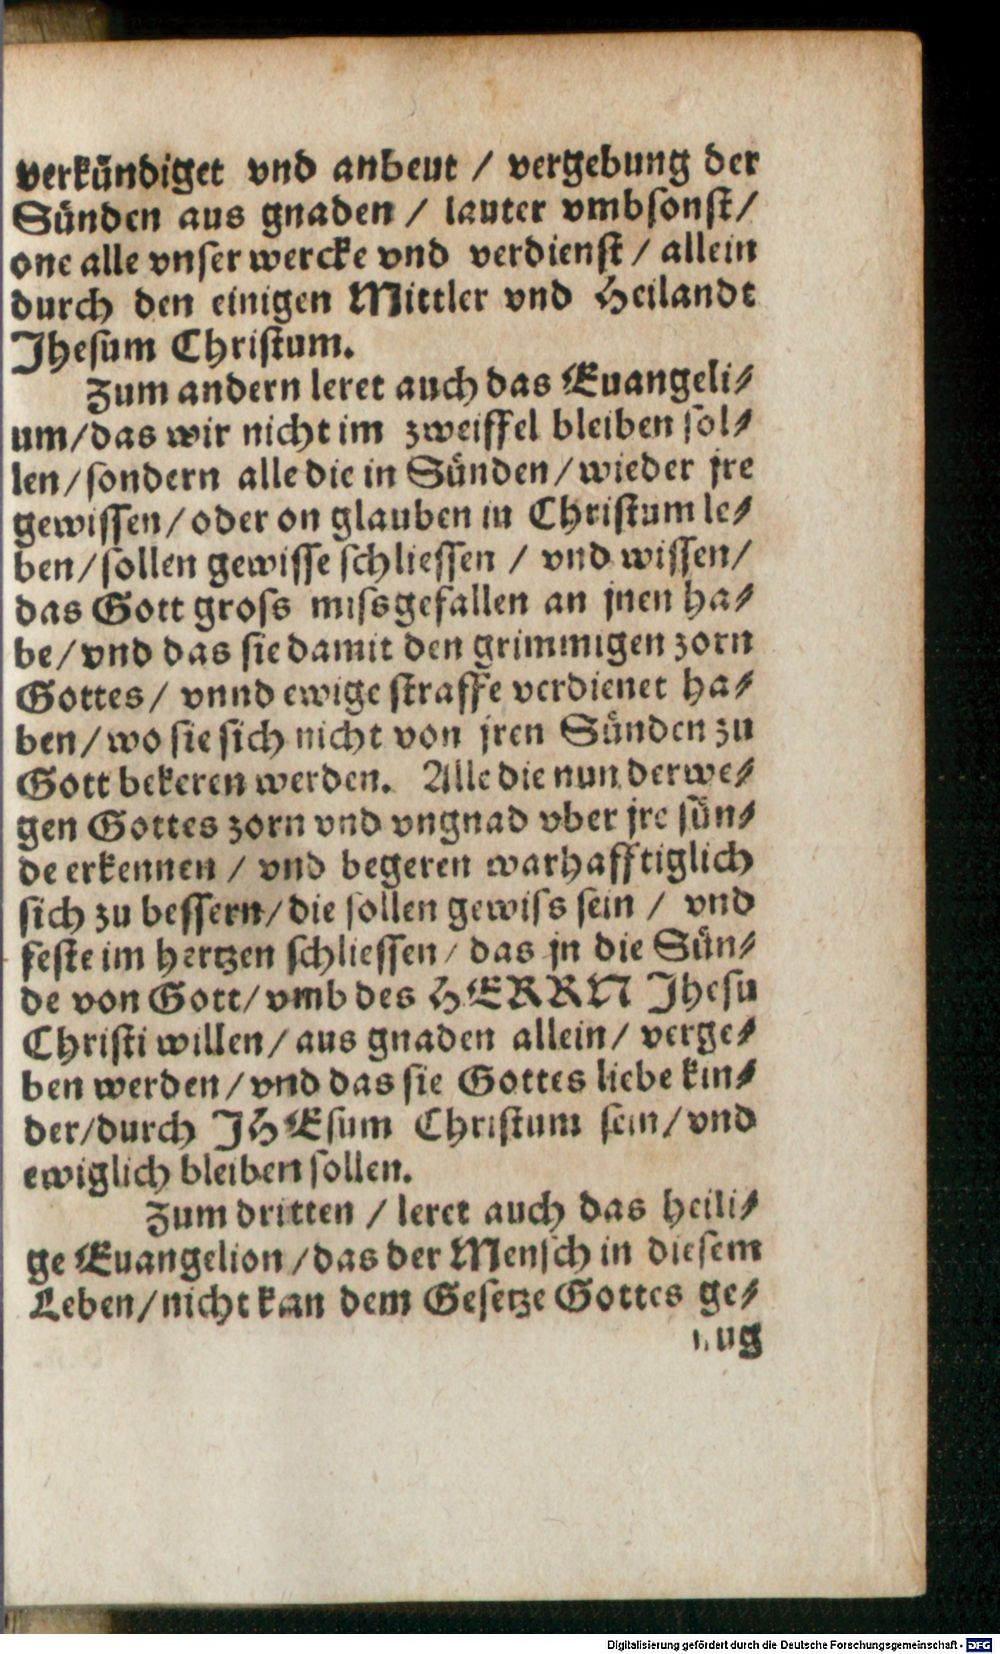 verkündiget vnd anbeut / vergebung der
Sünden aus gnaden / lauter vmbsonst/
one alle vnser wercke vnd verdienst / allein
durch den einigen Mittler vnd Heilandt
Jhesum Christum.
Zum andern leret auch das Euangeli⸗
um/das wir nicht im zweiffel bleiben sol⸗
len/sondern alle die in Sünden/wieder jre
gewissen/oder on glauben in Christum le⸗
ben/sollen gewisse schliessen / vnd wissen/
das Gott gross missgefallen an jnen ha⸗
be/vnd das sie damit den grimmigen zorn
Gottes/ vnnd ewige straffe verdienet ha⸗
ben/wo sie sich nicht von jren Sünden zu
Gott bekeren werden. Alle die nun derwe⸗
gen Gottes zorn vnd vngnad vber jre sün⸗
de erkennen / vnd begeren warhafftiglich
sich zu bessern/die sollen gewiss sein / vnd
feste im hertzen schliessen/ das jn die Sün⸗
de von Gott/vmb des HERRN Jhesu
Christi willen/aus gnaden allein/ verge⸗
ben werden/vnd das sie Gottes liebe kin⸗
der/durch JHEsum Christum sein/vnd
ewiglich bleiben sollen.
Zum dritten / leret auch das heili⸗
ge Euangelion/das der Mensch in diesem
Leben/nicht kan dem Gesetze Gottes ge⸗
nug
Digitalisierung gefördert durch die Deutsche Forschungsgemeinschaft - DFG